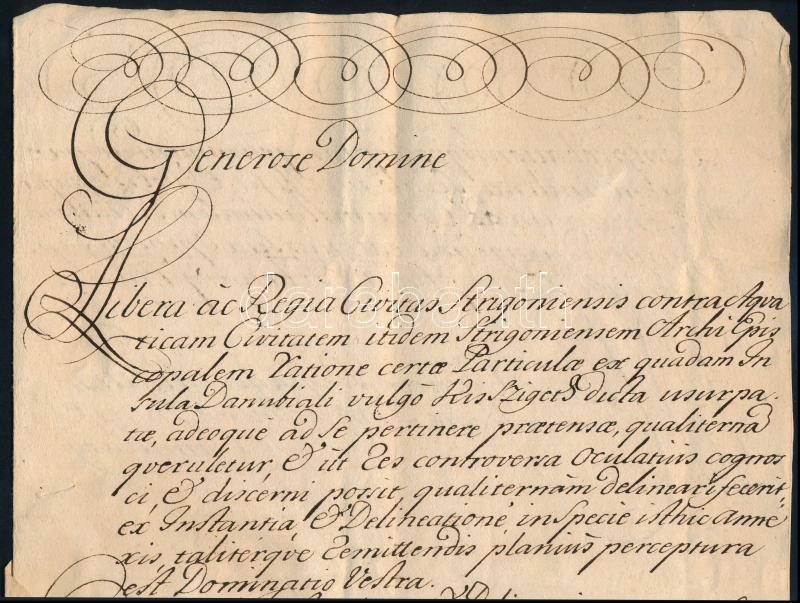 Generose Domine
Libera ác Regia Civitas Strigoniensis contra Aqva
ticam Civitatem itidem Strigoniensem Archi Epis
copalem ratione certæ Particulæ ex quadam In
sula Danubiali vulgò Kis Sziget dicta usurpa-
tæ, adeoque ad se pertinere prætensæ, qualiternã
qveruletur, & út res controversa oculatius cognos
ci, & discerni possit, qualiternám delineari fecerit,
ex Instantia, & Delineatione, in specie isthic anne
xis, taliterqve remittendis planius perceptura
est Dominatio Vestra.
darabanth